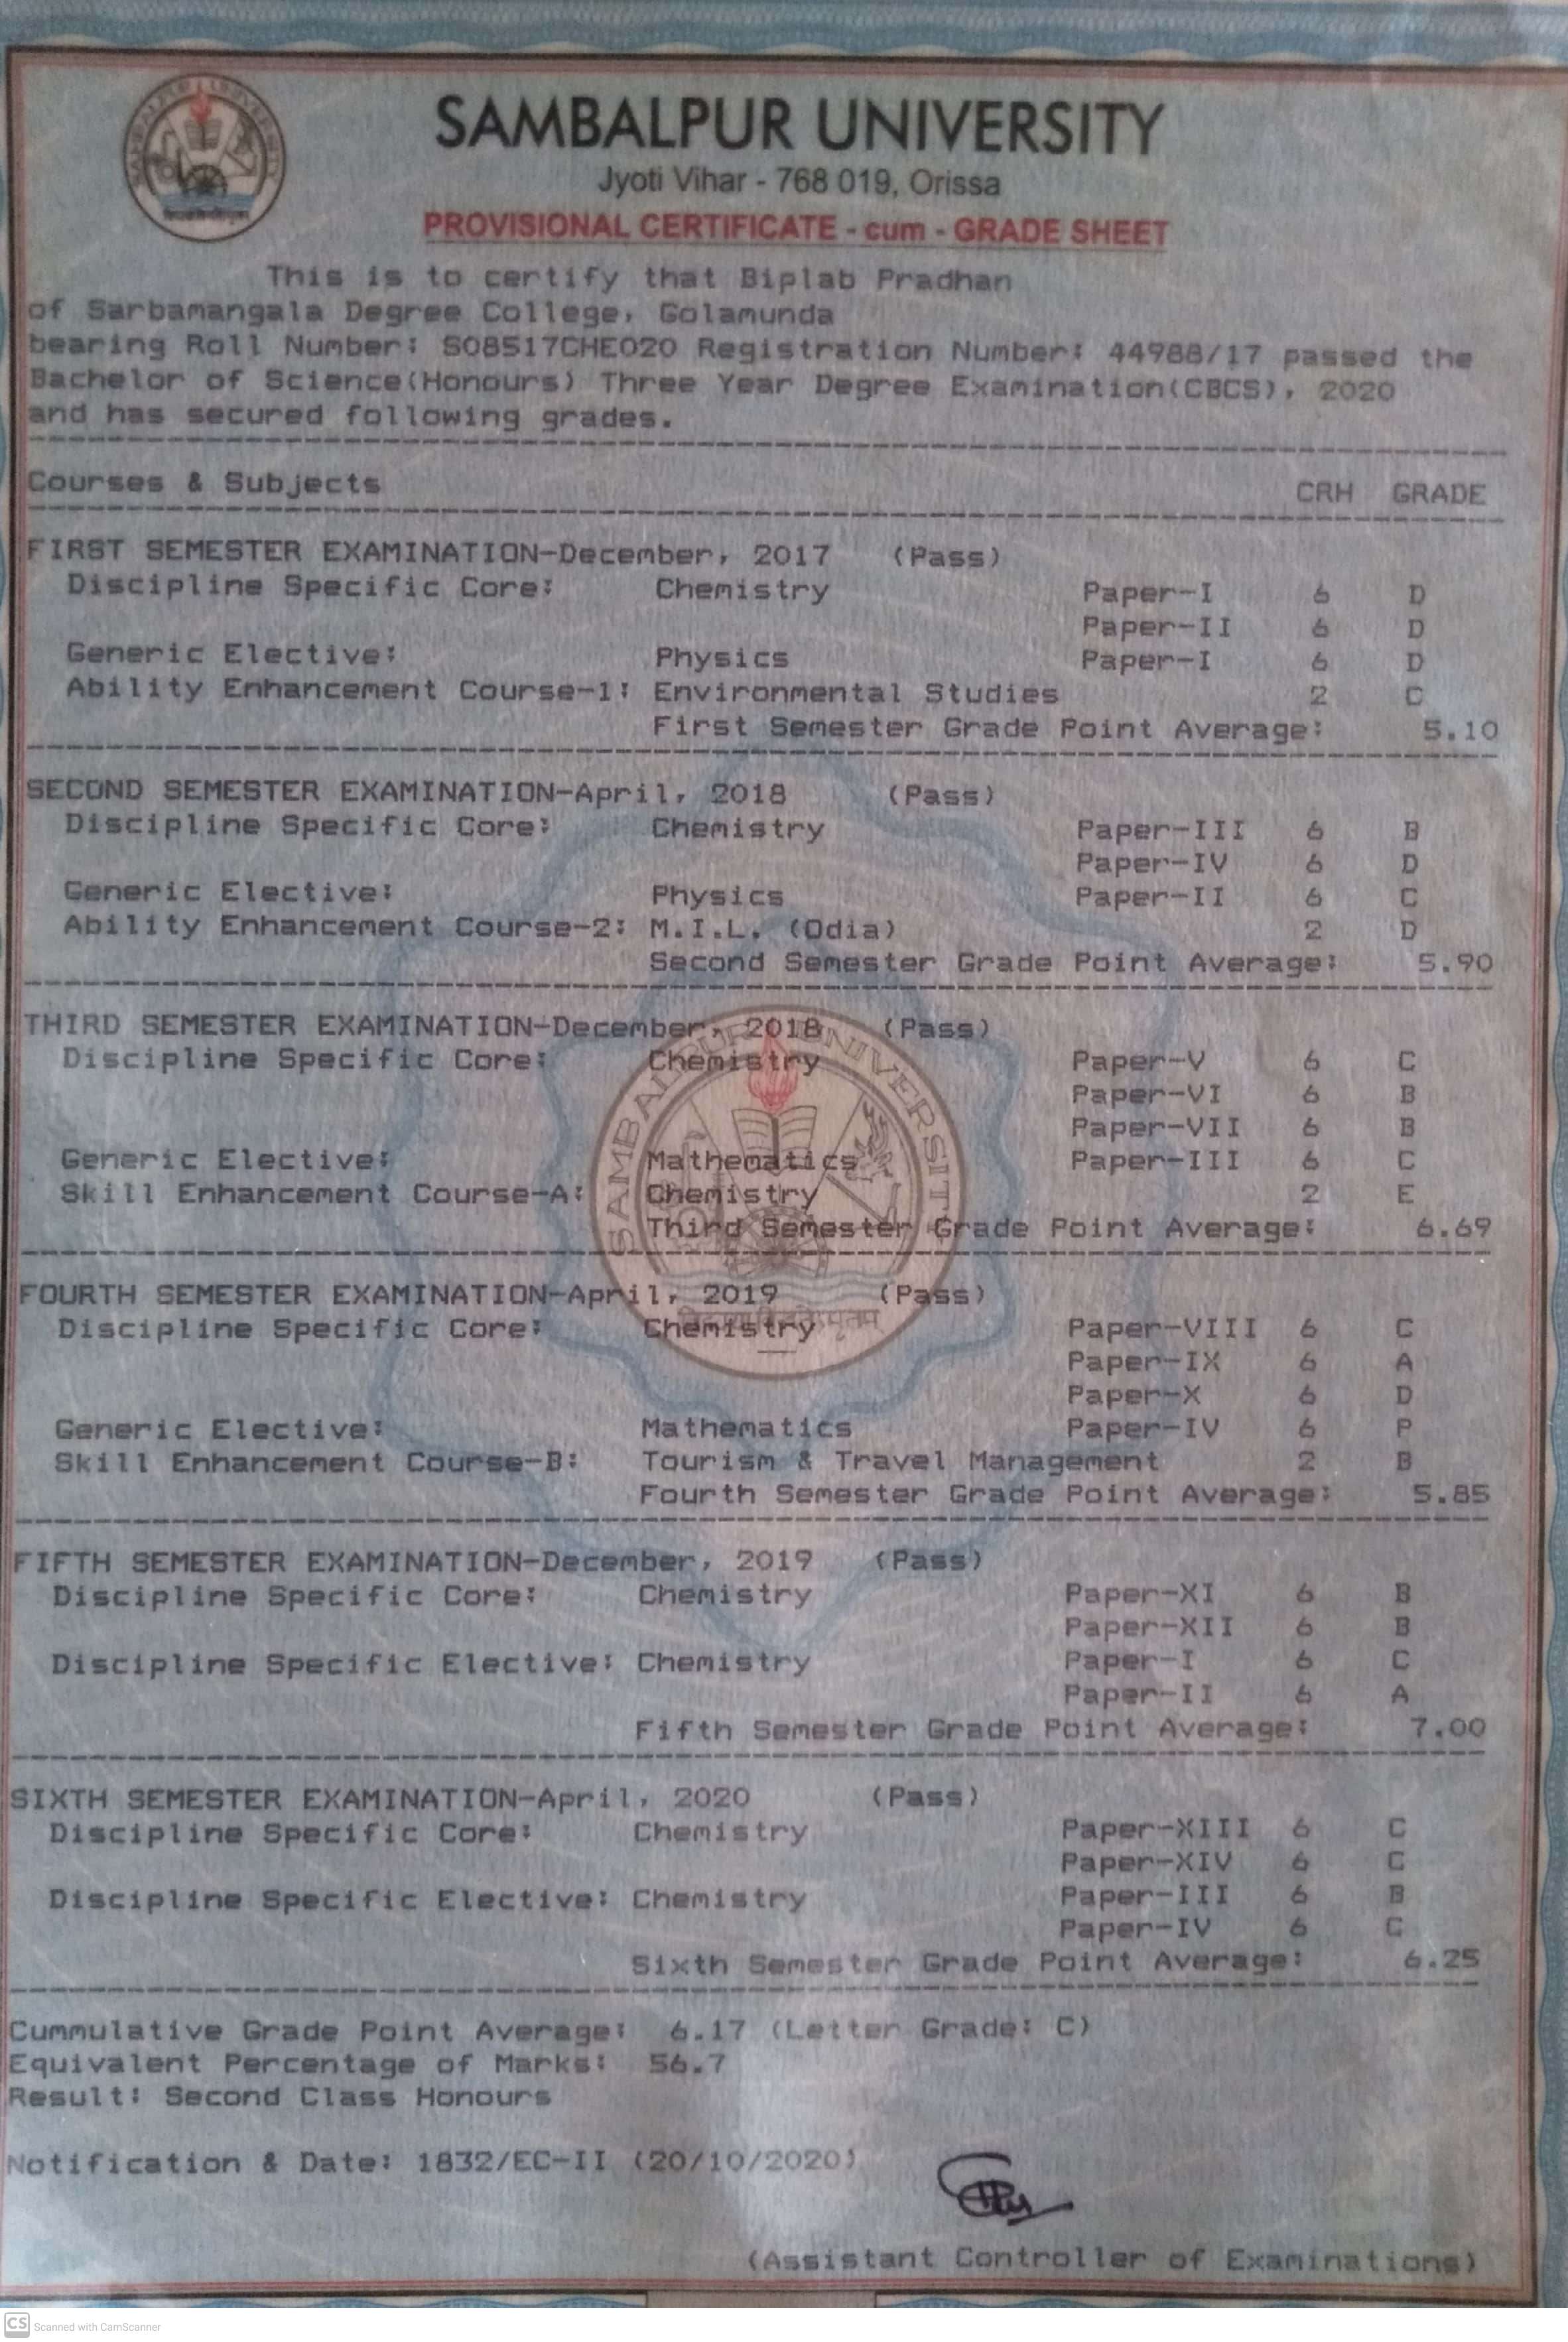 SAMBALPUR UNIVERSITY
Jyoti Vihar - 768 019, Orissa
PROVISIONAL CERTIFICATE - cum - GRADE SHEET
This is to certify that Biplab Pradhan
of Sarbamangala Degree College, Golamunda
bearing Roll Number: S08517CHE020 Registration Number: 44988/17 passed the
Bachelor of Science(Honours) Three Year Degree Examination(CBCS), 2020
and has secured following grades.
Courses & Subjects CRH GRADE
FIRST SEMESTER EXAMINATION-December, 2017 (Pass)
Discipline Specific Core: Chemistry Paper-I 6 D
Paper-II 6 D
Generic Elective: Physics Paper-I 6 D
Ability Enhancement Course-1: Environmental Studies 2 C
First Semester Grade Point Average: 5.10
SECOND SEMESTER EXAMINATION-April, 2018 (Pass)
Discipline Specific Core: Chemistry Paper-III 6 B
Paper-IV 6 D
Generic Elective: Physics Paper-II 6 C
Ability Enhancement Course-2: M.I.L. (Odia) 2 D
Second Semester Grade Point Average: 5.90
THIRD SEMESTER EXAMINATION-December, 2018 (Pass)
Discipline Specific Core: Chemistry Paper-V 6 C
Paper-VI 6 B
Paper-VII 6 B
Generic Elective: Mathematics Paper-III 6 C
Skill Enhancement Course-A: Chemistry 2 E
Third Semester Grade Point Average: 6.69
SAMBALPUR UNIVERSITY
FOURTH SEMESTER EXAMINATION-April, 2019 (Pass)
Discipline Specific Core: Chemistry Paper-VIII 6 C
Paper-IX 6 A
Paper-X 6 D
Generic Elective: Mathematics Paper-IV 6 P
Skill Enhancement Course-B: Tourism & Travel Management 2 B
Fourth Semester Grade Point Average: 5.85
FIFTH SEMESTER EXAMINATION-December, 2019 (Pass)
Discipline Specific Core: Chemistry Paper-XI 6 B
Paper-XII 6 B
Discipline Specific Elective: Chemistry Paper-I 6 C
Paper-II 6 A
Fifth Semester Grade Point Average: 7.00
SIXTH SEMESTER EXAMINATION-April, 2020 (Pass)
Discipline Specific Core: Chemistry Paper-XIII 6 C
Paper-XIV 6 C
Discipline Specific Elective: Chemistry Paper-III 6 B
Paper-IV 6 C
Sixth Semester Grade Point Average: 6.25
Cummulative Grade Point Average: 6.17 (Letter Grade: C)
Equivalent Percentage of Marks: 56.7
Result: Second Class Honours
Notification & Date: 1832/EC-II (20/10/2020)
(Assistant Controller of Examinations)
CS Scanned with CamScanner